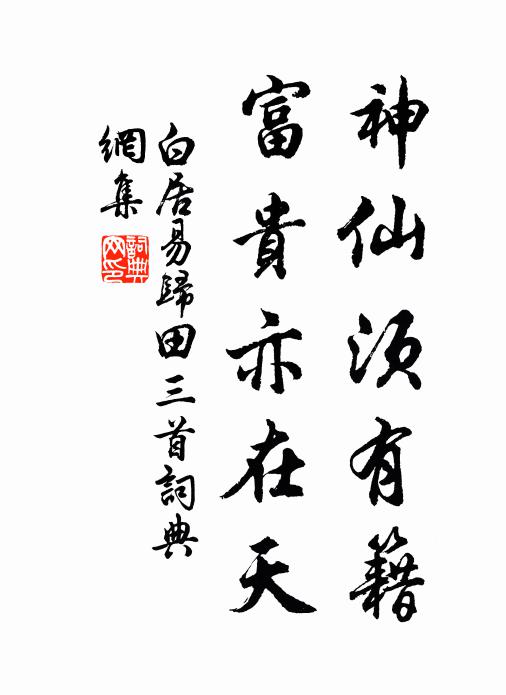 神仙須有籍
富貴亦在天
白居易歸田三首詞典
網集
詞典
网印